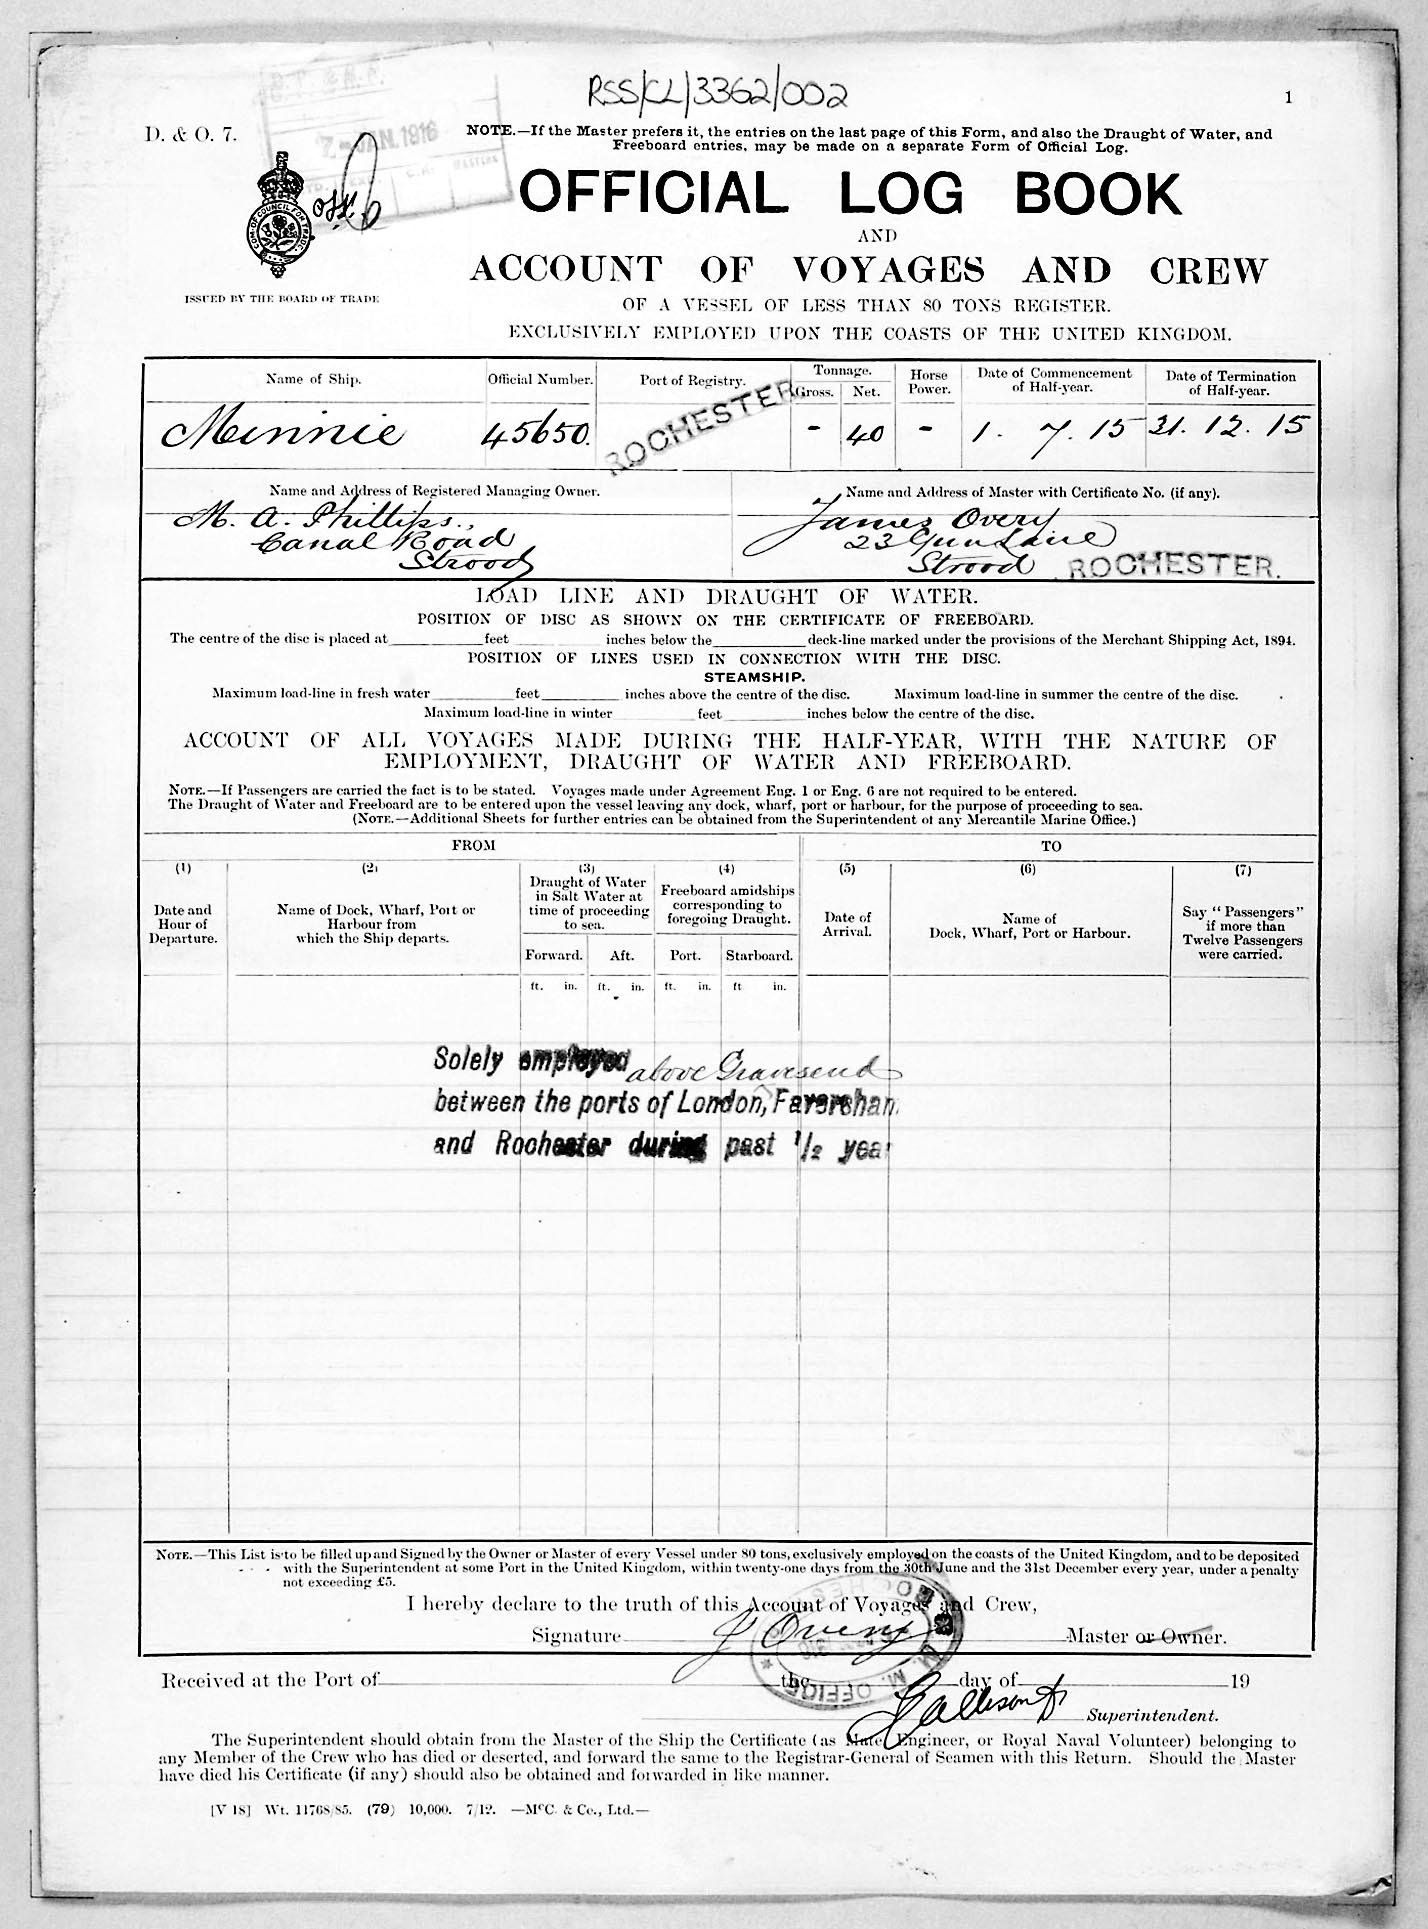 RSS/CL/3362/002
1
D. & O. 7.
7 - JAN. 1916
NOTE.—If the Master prefers it, the entries on the last page of this Form, and also the Draught of Water, and
Freeboard entries, may be made on a separate Form of Official Log.
OFFICIAL LOG BOOK
AND
ACCOUNT OF VOYAGES AND CREW
COM. OF COUNCIL FOR TRADE
ISSUED BY THE BOARD OF TRADE
OF A VESSEL OF LESS THAN 80 TONS REGISTER.
EXCLUSIVELY EMPLOYED UPON THE COASTS OF THE UNITED KINGDOM.
Name of Ship. Official Number. Port of Registry. Tonnage. Gross. Net. Horse Power. Date of Commencement of Half-year. Date of Termination of Half-year.
Minnie 45650. ROCHESTER - 40 - 1. 7. 15 31. 12. 15
Name and Address of Registered Managing Owner. Name and Address of Master with Certificate No. (if any).
M. A. Phillips., James Overy
Canal Road 23 Gun Lane
Strood Strood ROCHESTER.
LOAD LINE AND DRAUGHT OF WATER.
POSITION OF DISC AS SHOWN ON THE CERTIFICATE OF FREEBOARD.
The centre of the disc is placed at feet inches below the deck-line marked under the provisions of the Merchant Shipping Act, 1894.
POSITION OF LINES USED IN CONNECTION WITH THE DISC.
STEAMSHIP.
Maximum load-line in fresh water feet inches above the centre of the disc. Maximum load-line in summer the centre of the disc.
Maximum load-line in winter feet inches below the centre of the disc.
ACCOUNT OF ALL VOYAGES MADE DURING THE HALF-YEAR, WITH THE NATURE OF
EMPLOYMENT, DRAUGHT OF WATER AND FREEBOARD.
NOTE.—If Passengers are carried the fact is to be stated. Voyages made under Agreement Eng. 1 or Eng. 6 are not required to be entered.
The Draught of Water and Freeboard are to be entered upon the vessel leaving any dock, wharf, port or harbour, for the purpose of proceeding to sea.
(NOTE.—Additional Sheets for further entries can be obtained from the Superintendent of any Mercantile Marine Office.)
FROM TO
(1) (2) (3) (4) (5) (6) (7)
Date and Hour of Departure.
Name of Dock, Wharf, Port or Harbour from which the Ship departs.
Draught of Water in Salt Water at time of proceeding to sea.
Freeboard amidships corresponding to foregoing Draught.
Date of Arrival.
Name of Dock, Wharf, Port or Harbour.
Say "Passengers" if more than Twelve Passengers were carried.
Forward. Aft. Port. Starboard.
ft. in. ft. in. ft. in. ft in.
Solely employed above Gravesend
between the ports of London, Faversham
and Rochester during past 1/2 year
NOTE.—This List is to be filled up and Signed by the Owner or Master of every Vessel under 80 tons, exclusively employed on the coasts of the United Kingdom, and to be deposited
with the Superintendent at some Port in the United Kingdom, within twenty-one days from the 30th June and the 31st December every year, under a penalty
not exceeding £5.
I hereby declare to the truth of this Account of Voyages and Crew,
Signature J Overy Master or Owner.
ROCHESTER M. M. OFFICE
Received at the Port of the day of 19
Superintendent.
The Superintendent should obtain from the Master of the Ship the Certificate (as Mate, Engineer, or Royal Naval Volunteer) belonging to
any Member of the Crew who has died or deserted, and forward the same to the Registrar-General of Seamen with this Return. Should the Master
have died his Certificate (if any) should also be obtained and forwarded in like manner.
[V 18] Wt. 11768/85. (79) 10,000. 7/12. —McC. & Co., Ltd.—